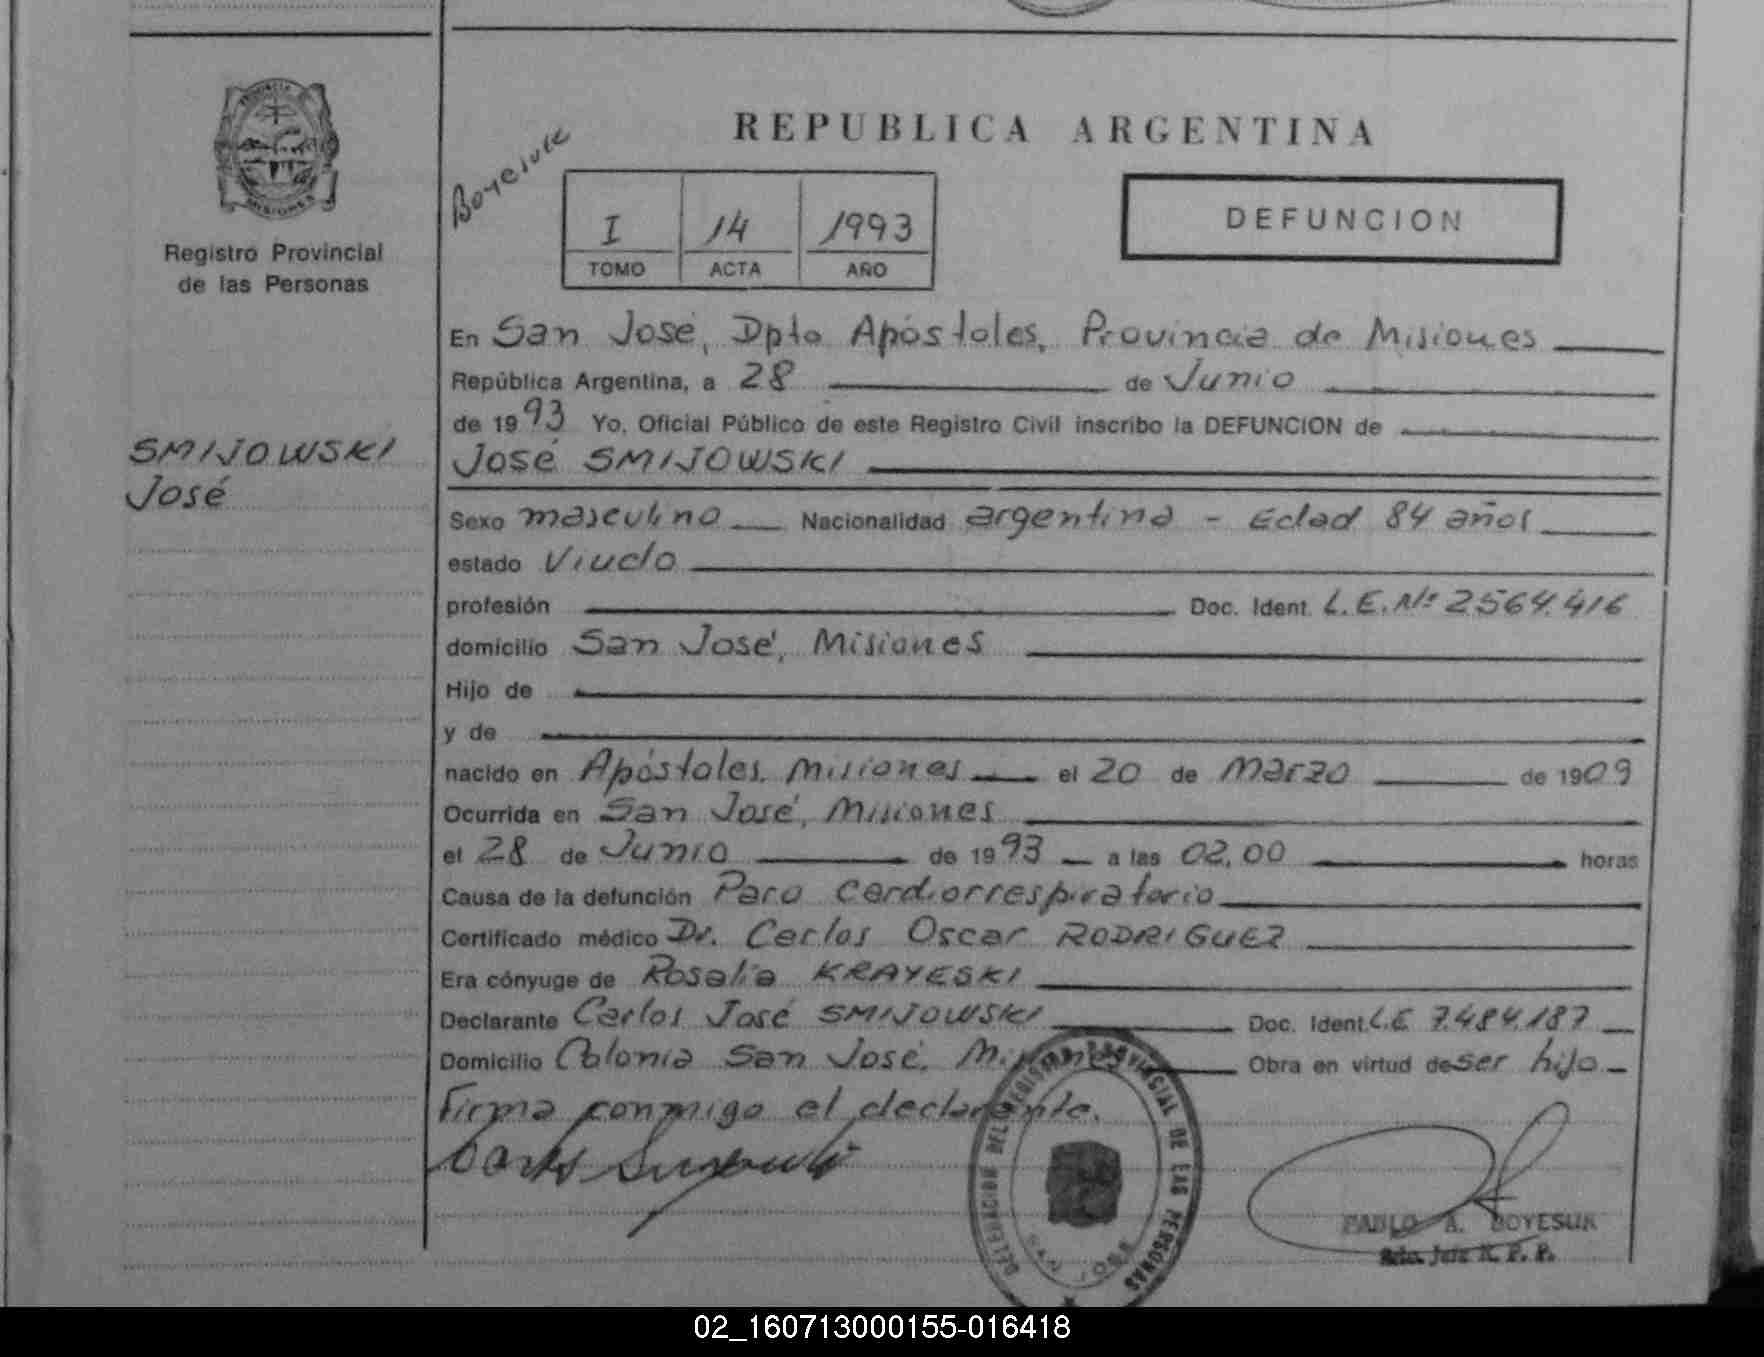 PROVINCIA
MISIONES
Registro Provincial
de las Personas
SMIJOWSKI
José
REPUBLICA ARGENTINA
I 14 1993
TOMO ACTA AÑO
DEFUNCION
En San José, Dpto Apóstoles, Provincia de Misiones
República Argentina, a 28 de Junio
de 1993 Yo, Oficial Público de este Registro Civil inscribo la DEFUNCION de
José SMIJOWSKI
Sexo masculino Nacionalidad argentina - Edad 84 años
estado Viudo
profesión Doc. Ident. L.E. Nº 2564.416
domicilio San José, Misiones
Hijo de
y de
nacido en Apóstoles, Misiones el 20 de Marzo de 1909
Ocurrida en San José, Misiones
el 28 de Junio de 1993 a las 02,00 horas
Causa de la defunción Paro Cardiorrespiratorio
Certificado médico Dr. Carlos Oscar RODRIGUEZ
Era cónyuge de Rosalia KRAYESKI
Declarante Carlos José SMIJOWSKI Doc. Ident. L.E. 7.484.187
Domicilio Colonia San José, Misiones Obra en virtud de ser hijo
Firma conmigo el declarante.
DELEGACION DEL REGISTRO PROVINCIAL DE LAS PERSONAS
SAN JOSE
PABLO A. BOYESUK
02_160713000155-016418